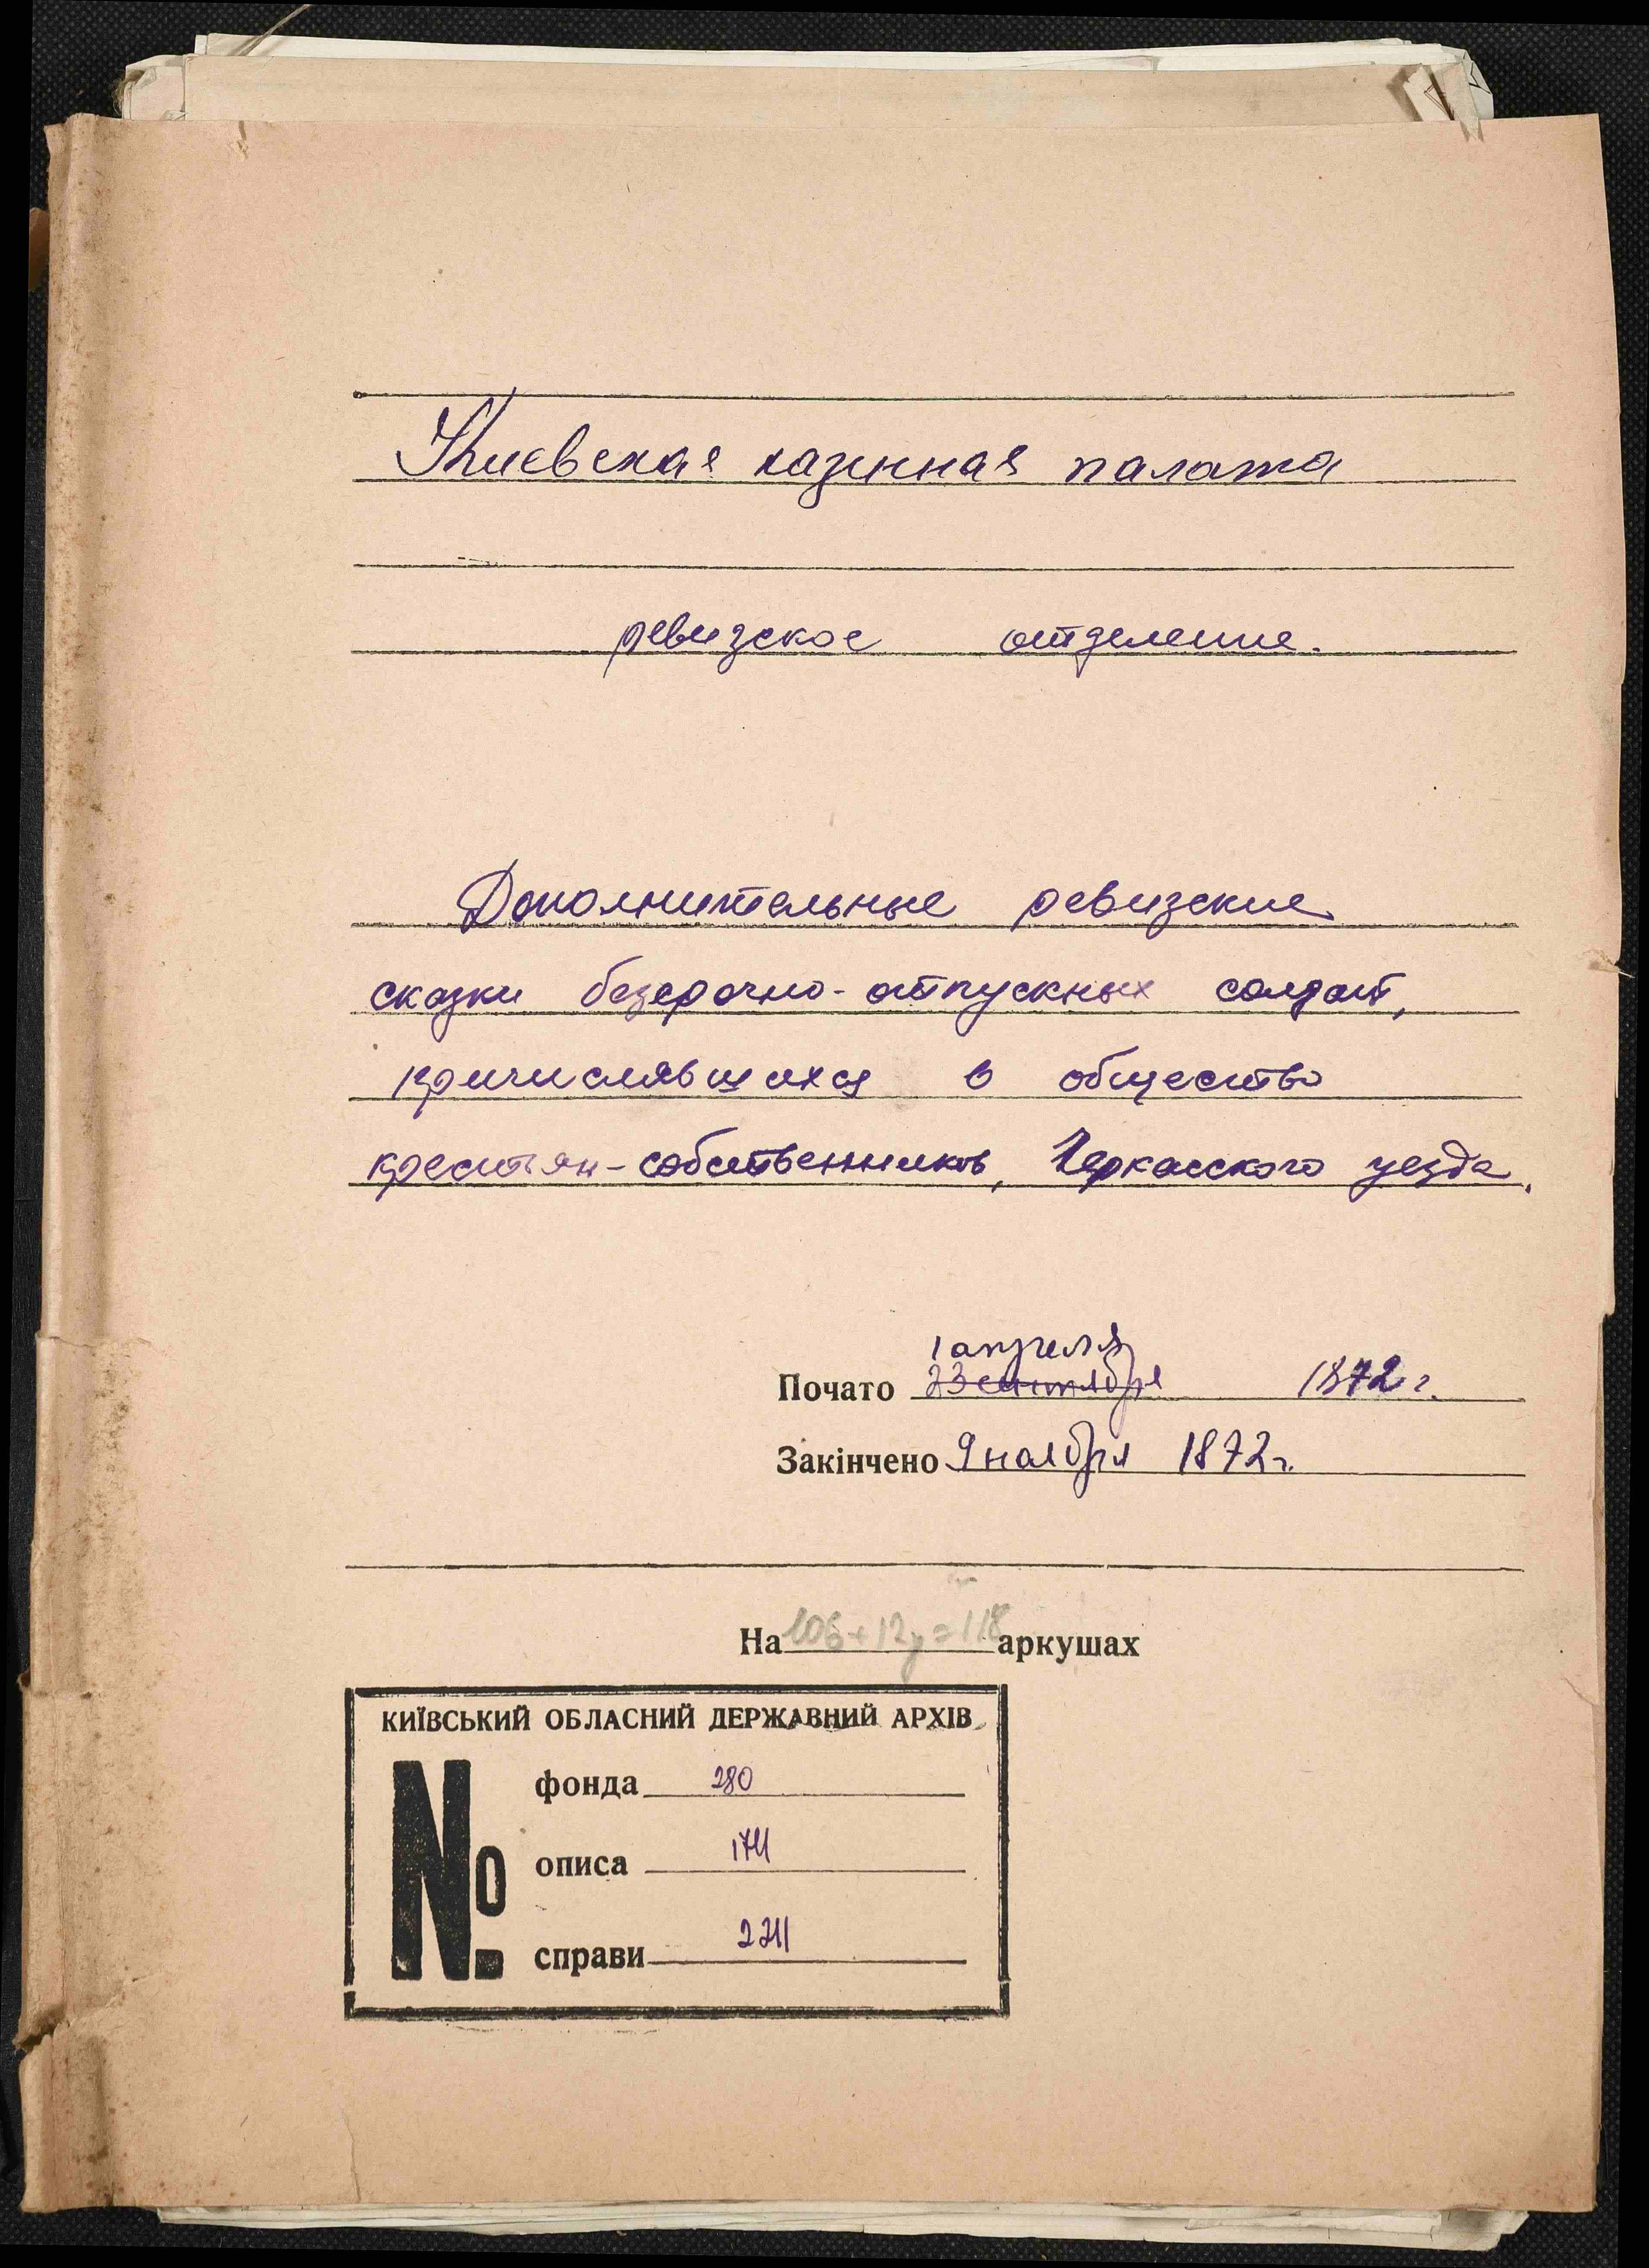 Киевская казенная палата
ревизское отделение.
Дополнительные ревизские
сказки безсрочно-отпускных солдат,
причислявшихся в общество
крестьян-собственников, Черкасского уезда.
1 апреля
Почато 23 сентября 1872 г.
Закінчено 9 ноября 1872 г.
На 106+12 = 118 аркушах
КИЇВСЬКИЙ ОБЛАСНИЙ ДЕРЖАВНИЙ АРХІВ
№
фонда 280
описа 174
справи